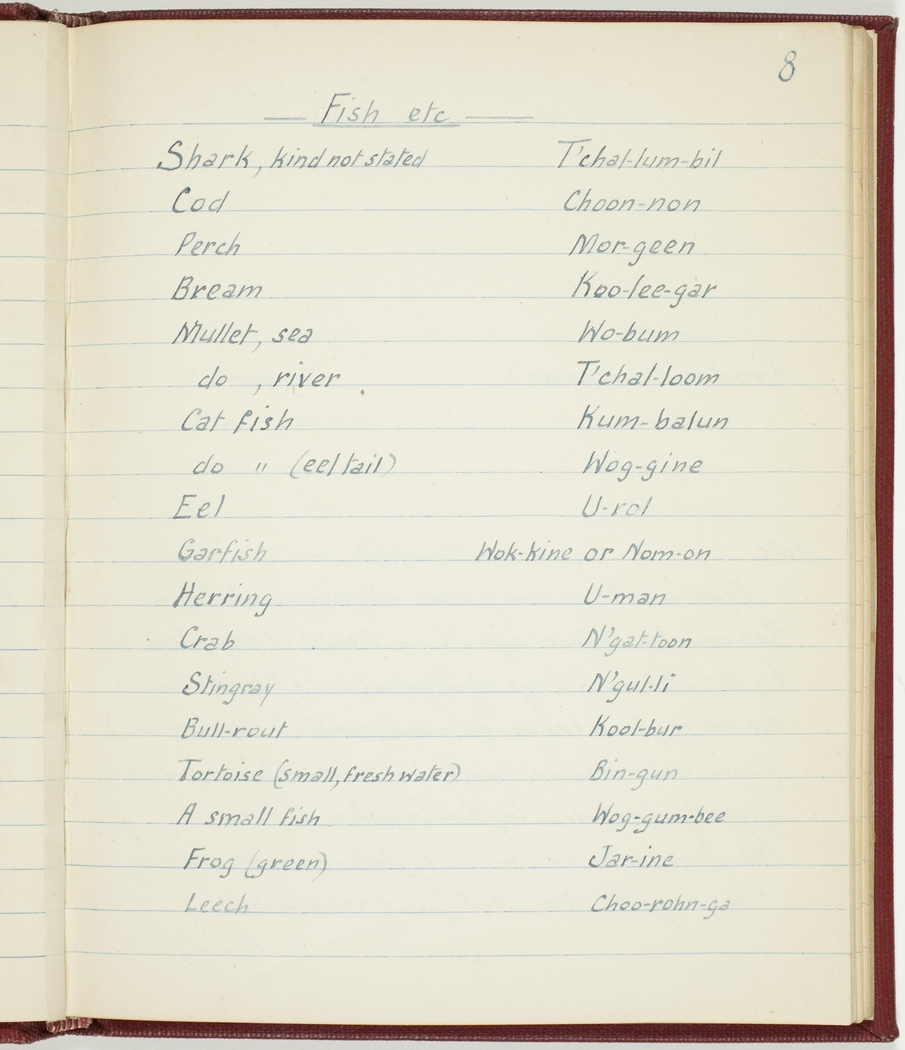 8
Fish etc
Shark, kind not stated T'chal-lum-bil
Cod Choon-non
Perch Mor-geen
Bream Koo-lee-gar
Mullet, sea Wo-bum
do , river T'chal-loom
Cat fish Kum-balun
do " (eel tail) Wog-gine
Eel U-rol
Garfish Wok-kine or Nom-on
Herring U-man
Crab N'gat-toon
Stingray N'gul-li
Bull-rout Kool-bur
Tortoise (small, fresh water) Bin-gun
A small fish Wog-gum-bee
Frog (green) Jar-ine
Leech Choo-rohn-ga